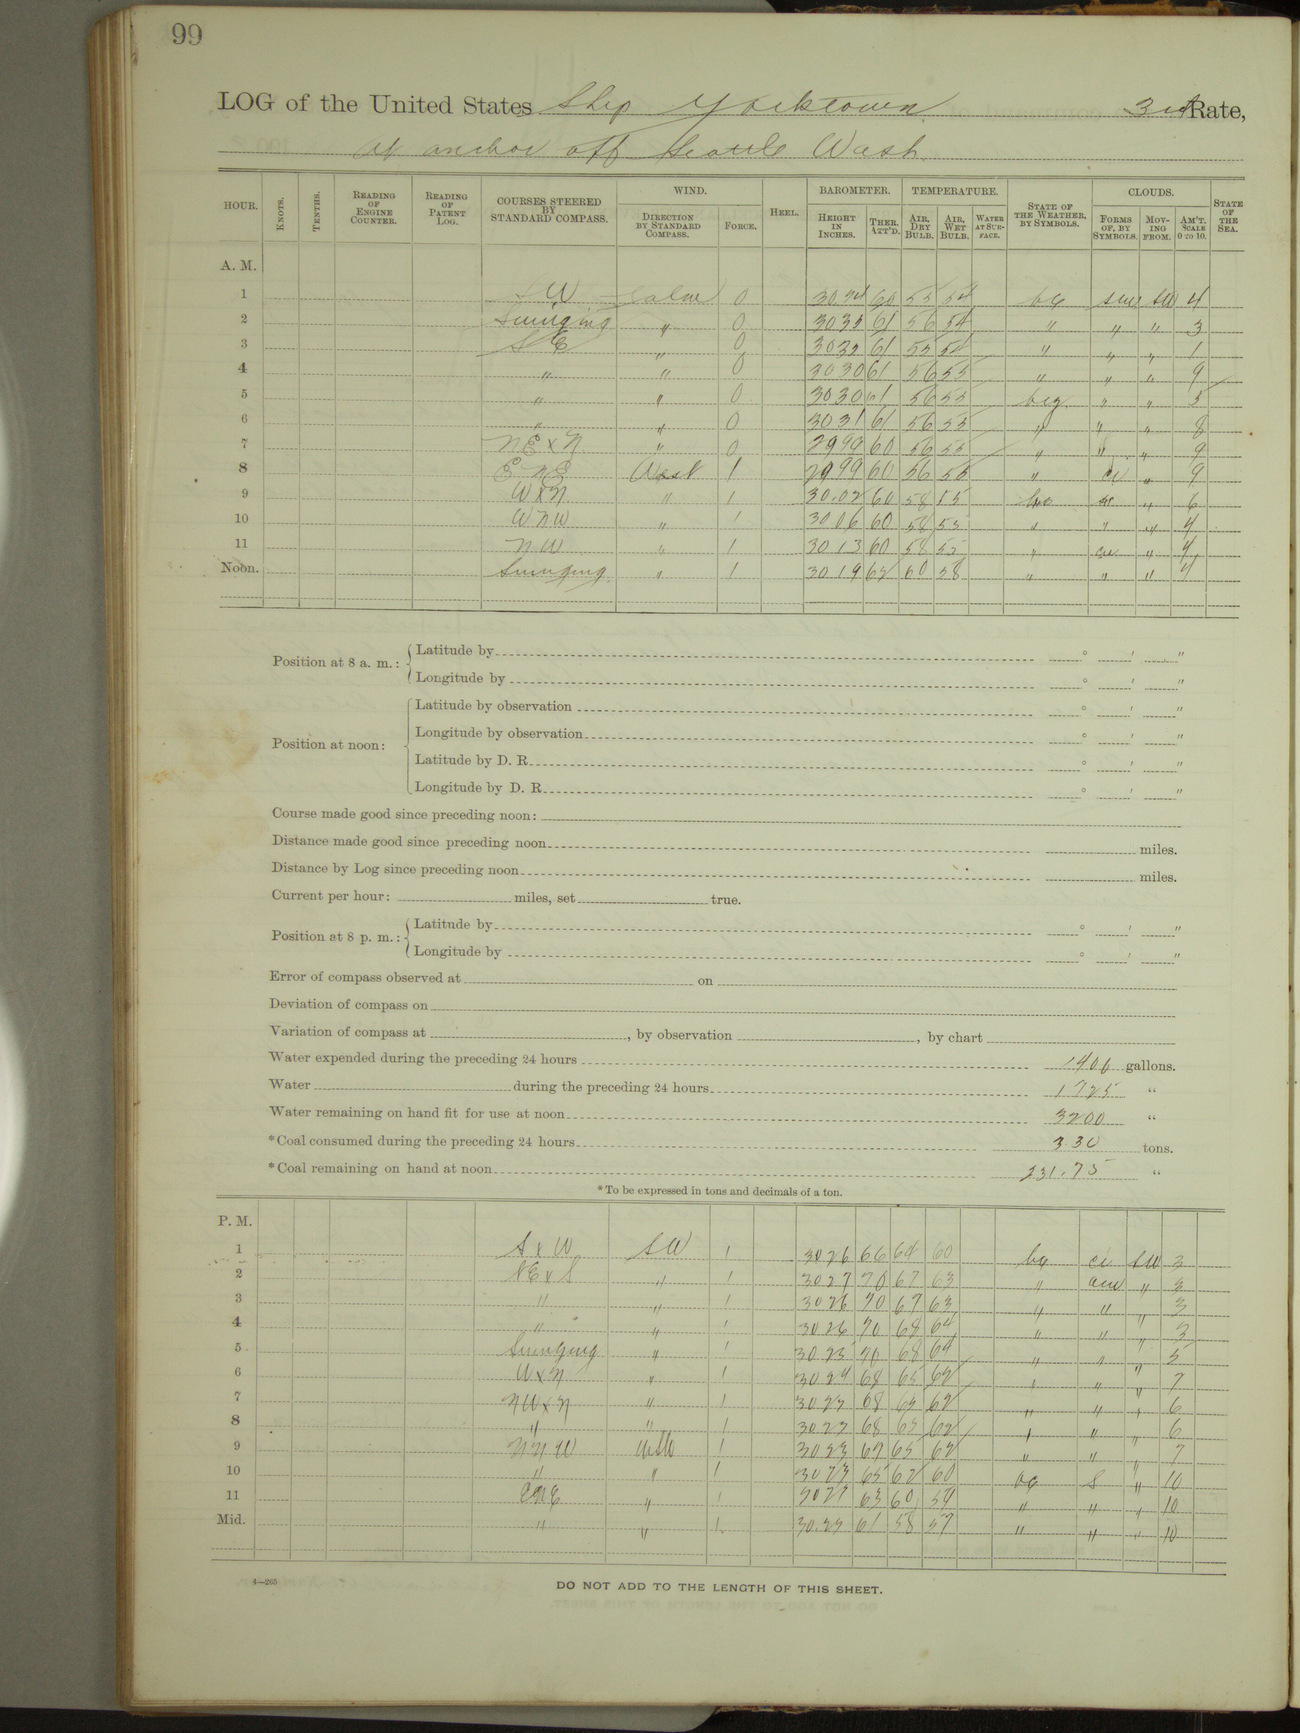 99
LOG of the United States Ship Yorktown 3rd Rate,
At anchor off Seattle Wash.
HOUR. KNOTS. TENTHS. READING OF ENGINE COUNTER. READING OF PATENT LOG. COURSES STEERED BY STANDARD COMPASS. WIND. DIRECTION BY STANDARD COMPASS. FORCE. HEEL. BAROMETER. HEIGHT IN INCHES. THER. ATT'D. TEMPERATURE. AIR, DRY BULB. AIR, WET BULB. WATER AT SUR-FACE. STATE OF THE WEATHER, BY SYMBOLS. CLOUDS. FORMS OF, BY SYMBOLS. MOV-ING FROM. AM'T. SCALE 0 TO 10. STATE OF THE SEA.
A. M.
1 Calm 0 60 55 54 bc SW 4
2 Swinging " 0 61 56 54 " " " 3
3 SE " 0 61 55 54 " " " 1
4 " " 0 3030 61 56 55 " " " 9
5 " " 0 3030 61 56 55 bcg " " 5
6 " " 0 3031 61 56 55 " " " 8
7 NE x N " 0 2999 60 56 55 " " " 9
8 E NE West 1 2999 60 56 55 " cu " 9
9 W x N " 1 30.02 60 58 55 " 6
10 W N W " 1 3006 60 58 55 " " " 4
11 N W " 1 3013 60 58 55 " cu " 4
Noon. Swinging " 1 3019 62 60 58 " " " 4
Position at 8 a. m.: Latitude by ° ' "
Longitude by ° ' "
Position at noon: Latitude by observation ° ' "
Longitude by observation ° ' "
Latitude by D. R. ° ' "
Longitude by D. R. ° ' "
Course made good since preceding noon:
Distance made good since preceding noon miles.
Distance by Log since preceding noon miles.
Current per hour: miles, set true.
Position at 8 p. m.: Latitude by ° ' "
Longitude by ° ' "
Error of compass observed at on
Deviation of compass on
Variation of compass at , by observation , by chart
Water expended during the preceding 24 hours 1406 gallons.
Water during the preceding 24 hours 1725 "
Water remaining on hand fit for use at noon 3200 "
*Coal consumed during the preceding 24 hours 3.30 tons.
*Coal remaining on hand at noon 231.75 "
*To be expressed in tons and decimals of a ton.
P. M.
1 S x W SW 1 3026 66 64 60 bc ci SW 3
2 " 1 3027 70 67 63 " " 3
3 " " 1 3026 70 67 63 " " " 3
4 " " 1 3026 70 68 64 " " " 3
5 Swinging " 1 3025 70 68 64 " " " 5
6 W x N " 1 3024 68 65 62 " " " 7
7 NW x N " 1 68 65 62 " " " 6
8 " " 1 68 65 62 " " " 6
9 N N W 1 3023 67 65 62 " " " 7
10 " " 1 3023 65 62 60 S " 10
11 " 1 63 60 59 " " " 10
Mid. " " 1 30.25 61 58 57 " " " 10
4—265
DO NOT ADD TO THE LENGTH OF THIS SHEET.